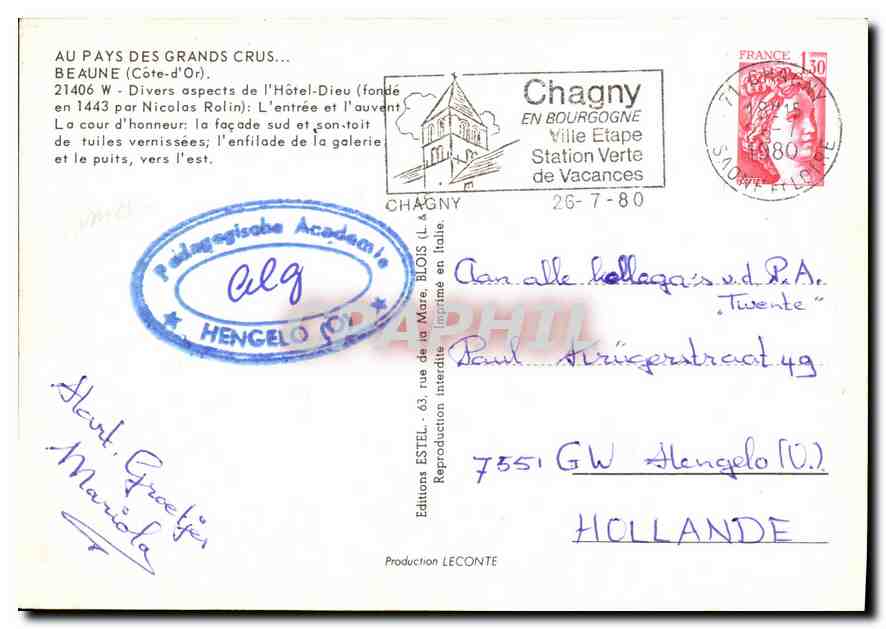 AU PAYS DES GRANDS CRUS...
BEAUNE (Côte-d'Or).
21406 W - Divers aspects de l'Hôtel-Dieu (fondé
en 1443 par Nicolas Rolin): L'entrée et l'auvent
La cour d'honneur: la façade sud et son toit
de tuiles vernissées; l'enfilade de la galerie
et le puits, vers l'est.
Chagny
EN BOURGOGNE
Ville Etape
Station Verte
de Vacances
CHAGNY 26-7-80
FRANCE 1,30
71 CHAGNY
1980
SAONE ET LOIRE
Pedagogische Academie
alg
HENGELO (O)
DELCAMPHIL
Editions ESTEL - 63, rue de la Mare, BLOIS (L. &
Reproduction interdite Imprimé en Italie.
Aan alle kollega's v.d. P.A.
"Twente"
Paul Krügerstraat 49
7551 GW Hengelo (O.)
HOLLANDE
Hart. Groetjes
Mariola
Production LECONTE